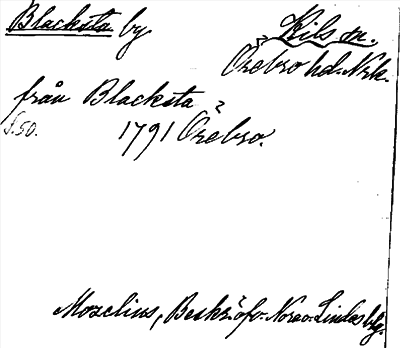 Blacksta by. Kils sn.
Örebro hd. Nrk.
från Blacksta
S. 50. 1791 Örebro.
Mozelius, Beskr. öfv. Nora o. Lindes blg.